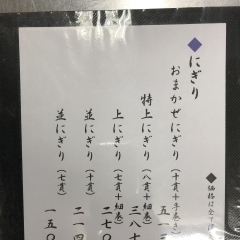 ◆にぎり
おまかせにぎり（十貫＋手巻き）
特上にぎり（八貫＋細巻）三八七
上にぎり（七貫＋細巻）二七〇
並にぎり（十貫）二一四
並にぎり（七貫）一五〇
◆価格は全て